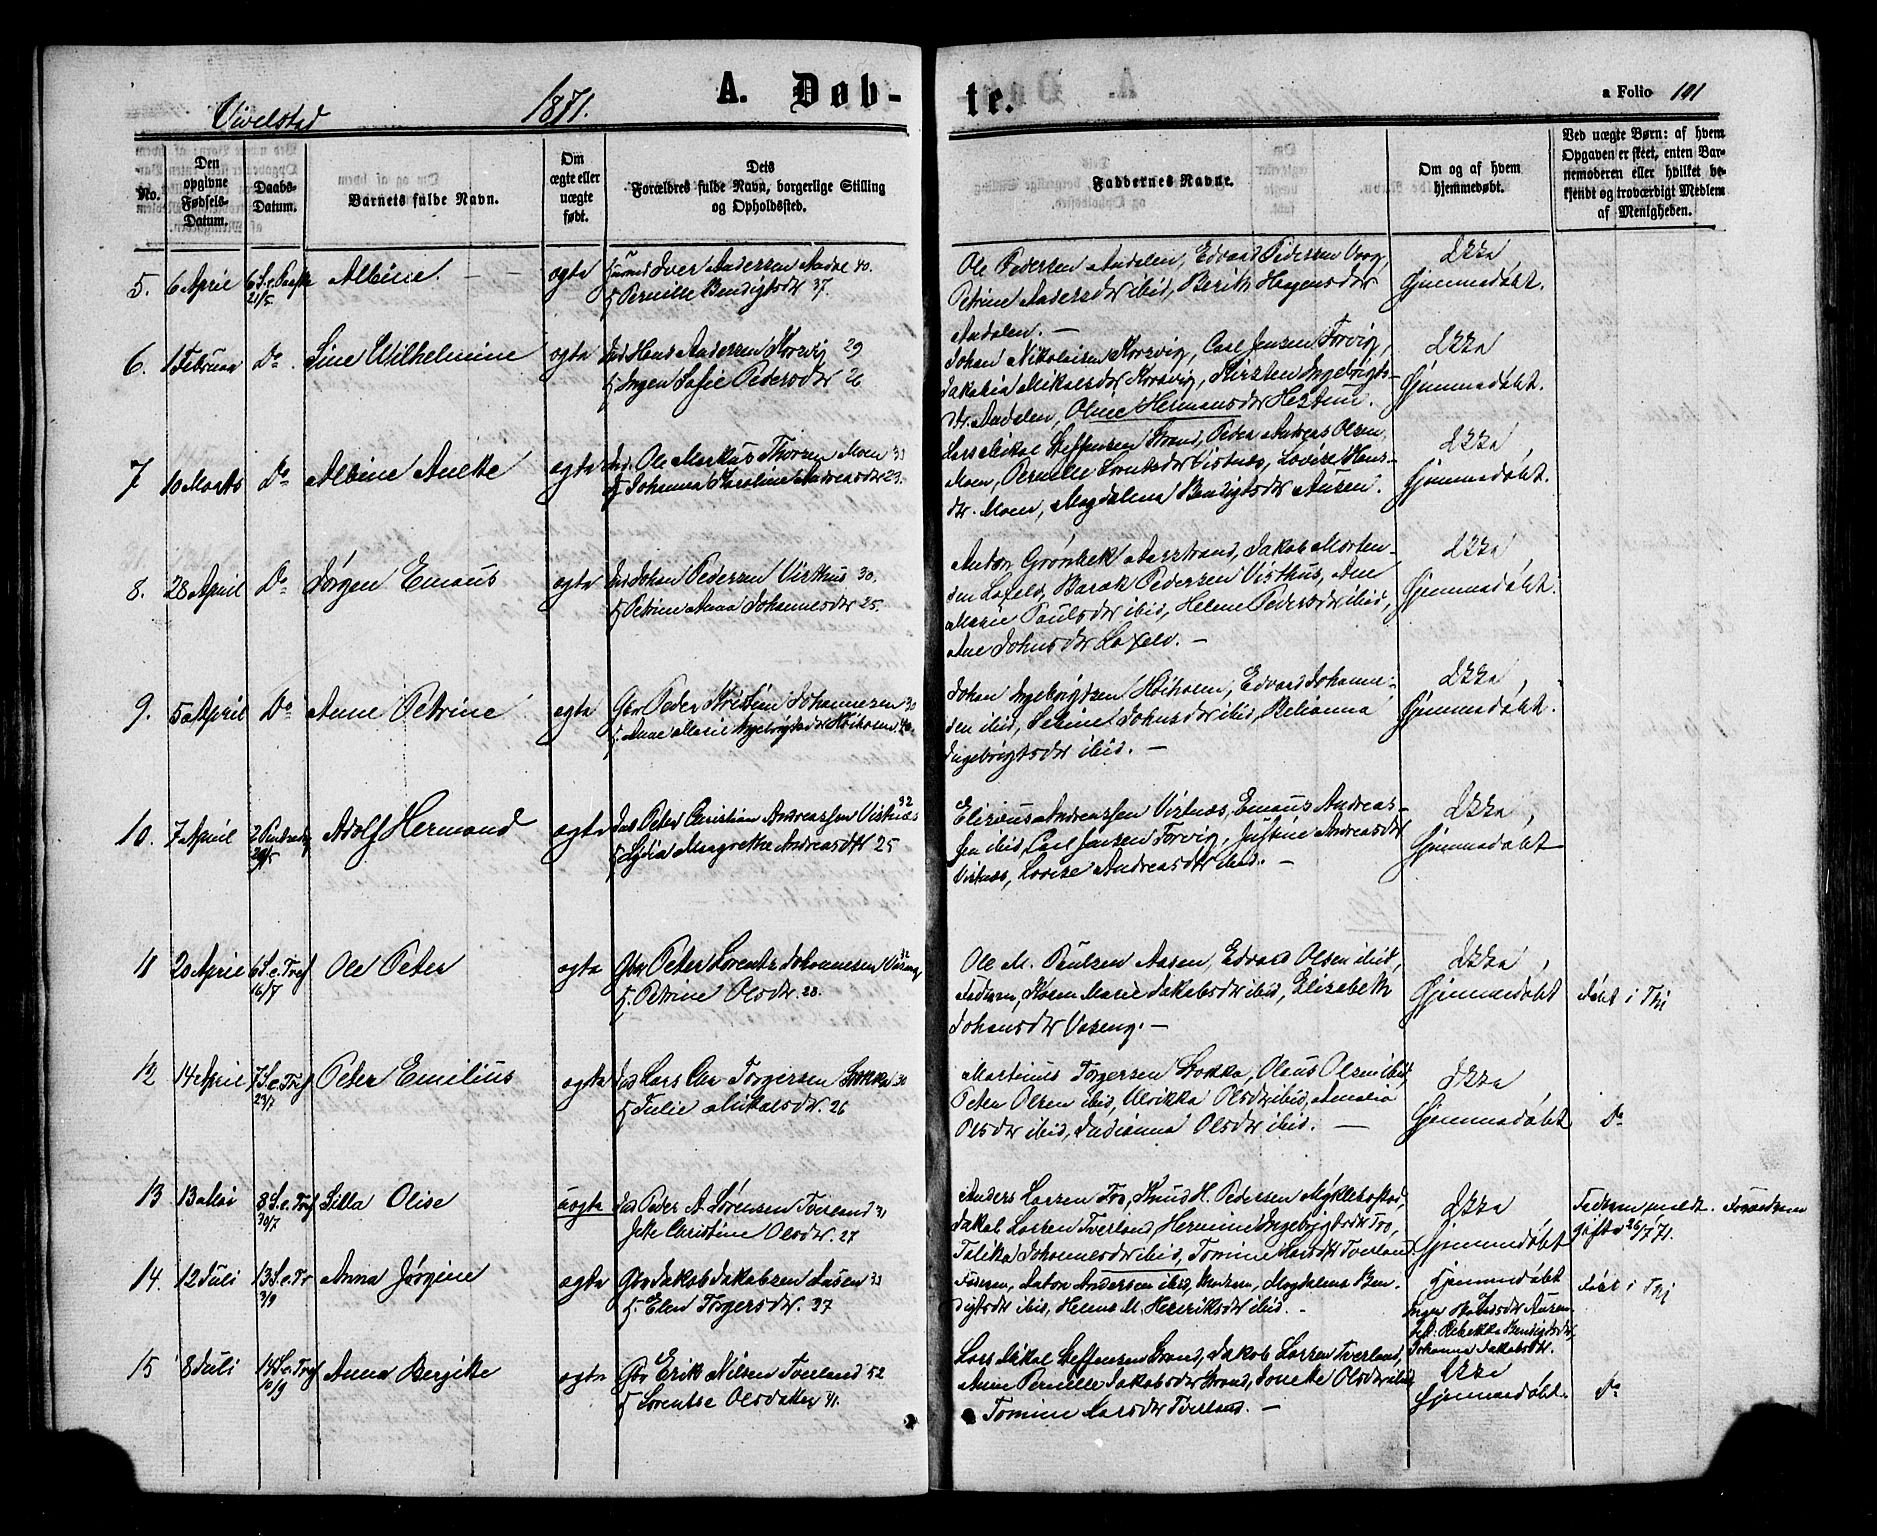 Vivelstad 1871. A. Døb-
te. a Folio 191
No.
Den opgivne Fødsels-Datum.
Daabs-Datum.
Barnets fulde Navn.
Om ægte eller uægte født.
Dets Forældres fulde Navn, borgerlige Stilling og Opholdssted.
Faddernes Navne.
Om og af hvem hjemmedøbt.
Ved uægte Børn: af hvem Opgaven er skeet, enten Barnemoderen eller hvilket bekjendt og troværdigt Medlem af Menigheden.
5. 6 April 6 S. e. Paaske 21/5 Albine. ægta Iver Andersen Aadal 40.
H Pernille Bendigtsdtr 37.
Ole Pedersen Aadalen, Edvard Pedersen
Petrine Andersdtr ibid, Berit Hagensdtr
Aadalen. —
Ikke
Hjemmedøbt.
6. 1 Februar Do. Sine Wilhelmine ægta Ind Hans Andersen Korsvig 29
H Ingen Sofie Pedersdtr 26
Johan Nikolaisen Korsvig, Carl Jensen Forvig,
Jakobia Mikalsdtr Korsvig, Kirsten Ingebrigts-
dtr. Aadalen, Oline Hermansdtr Hestem.
Ikke
Hjemmedøbt.
7 10 Marts Do Albine Anette ægta Ind. Ole Markus Thorsen Moen 33
H Johanna Karoline Andreasdtr 29.
Lars Mikal Steffensen Grand, Peder Andreas Olsen
Moen, Pernille Lorntsdtr Vistnes, Lovise Hans-
dtr. Moen, Magdalena Bendigtsdtr Aasen.
Ikke,
Hjemmedøbt.
8. 28 April Do Jørgen Emaus ægta Ind Johan Pedersen Visthus 30.
H Petrine Anna Johannesdtr 25.
Anton Grønbek Aasstrand, Jakob Morten-
sen Laxeld, Barak Pedersen Visthus, Ane
Marie Paulsdtr ibid, Helene Pedersdtr ibid,
Ane Johnsdtr Laxelv. —
Ikke,
Hjemmedøbt.
9. 5 April Do Anne Petrine ægta Gbr Peder Kristian Johannesen 30
H. Anne Marie Ingebrigtsdtr Høiholm 40.
Johan Ingebrigtsen Høiholm, Edvard Johanne-
sen ibid, Serine Johnsdtr ibid, Behanna
Ingebrigtsdtr ibid. —
Ikke,
Hjemmedøbt.
10. 7 April 2 Pintsedag 29/5 Adolf Hermand ægta Ind Peter Christian Andreassen Vistnæs 32
H Lydia Magrethe Andreasdtr 25
Elisæus Andreassen Vistnæs, Emaus Andreas-
sen ibid, Carl Jensen Forvig, Justine Andreasdtr
Vistnæs, Lovise Andreasdtr ibid. —
Ikke,
Hjemmedøbt
11 20 April 6 S. e. Tref 16/7 Ole Peter ægta Gbr Peter Lorents Johannesen Vaseng 32
H. Petrine Olsdtr. 28.
Ole M. Paulsen Aasen, Edvard Olsen ibid,
Faderen, Karen Marie Jakobsdtr ibid, Elisabeth
Johansdtr Vaseng. —
Ikke,
Hjemmedøbt
Født i Thj
12 14 April 7 S. e. Tref 23/7 Peter Emilius ægta Ind Lars Chr Torgersen Stokka 30
H Julie Mikalsdtr. 26
Martinus Torgersen Stokka, Olaus Olsen ibid,
Peter Olsen ibid, Ulrikka Olsdtr ibid, Amalia
Olsdtr ibid, Indianna Olsdtr ibid. —
Ikke
Hjemmedøbt
Do
13 13 Mai 8 S. e. Tref 30/7 Silla Olise uægta Ind Peder A. Sørensen Tverland 31
Pike Christine Olsdtr. 27
Anders Larsen Fro, Knud H. Pedersen Myklebostad,
Jakob Larsen Tverland, Hermine Ingebrigtsdtr Fro,
Talika Johannesdtr ibid, Tomine Larsdtr Tverland.
Ikke
Hjemmedøbt
Faderen meldt. Forældrene
gifte 26/7 71.
14. 12 Juli 13 S. e. Tr 3/9 Anna Jørgine ægta Gbr Jakob Jakobsen Aasen 33
H. Elen Torgersdtr. 37
Faderen, Anton Andersen ibid, Magdalena Ben-
digtsdtr ibid, Helene M. Henriksdtr ibid. —
Hjemmedøbt
Rebekka Bendigtsdtr,
Johanna Jakobsdtr.
Født i Thj
15 8 Juli 14 S. e. Tref 10/9 Anna Bergitte ægta Gbr Erik Nilsen Tverland 52
H Lorentse Olsdatter 41.
Lars Mikal Steffensen Grand, Jakob Larsen Tverland,
Anne Pernille Jakobsdtr Grand, Jonette Olsdtr ibid,
Tomine Larsdtr Tverland. —
Ikke
Hjemmedøbt.
Do